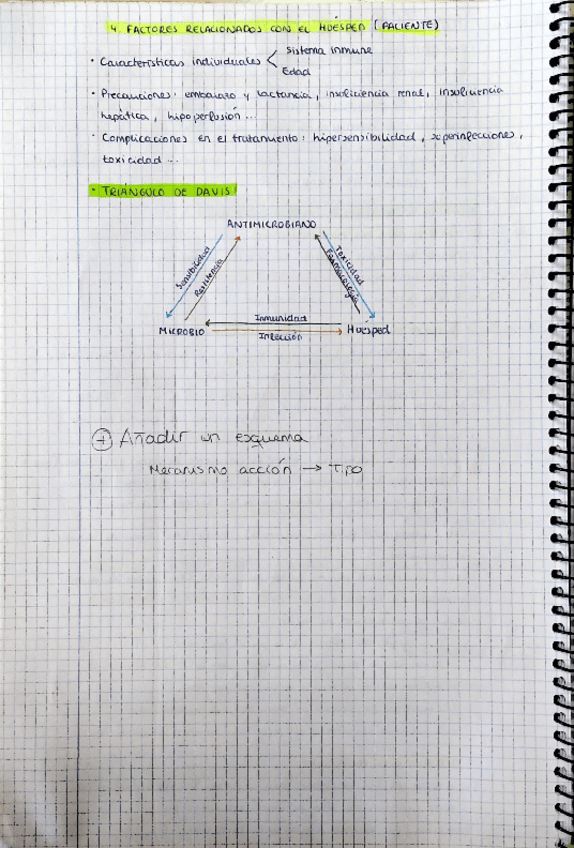 4. FACTORES RELACIONADOS CON EL HUÉSPED (PACIENTE)
· Características individuales < Sistema inmune
Edad
· Precauciones: embarazo y lactancia, insuficiencia renal, insuficiencia
hepática, hipoperfusión ...
· Complicaciones en el tratamiento: hipersensibilidad, superinfecciones,
toxicidad ...
· TRIÁNGULO DE DAVIS
ANTIMICROBIANO
Sensibilidad
Resistencia
Toxicidad
Farmacología
MICROBIO
Inmunidad
Infección
Huésped
+ Añadir un esquema
Mecanismo acción → Tipo